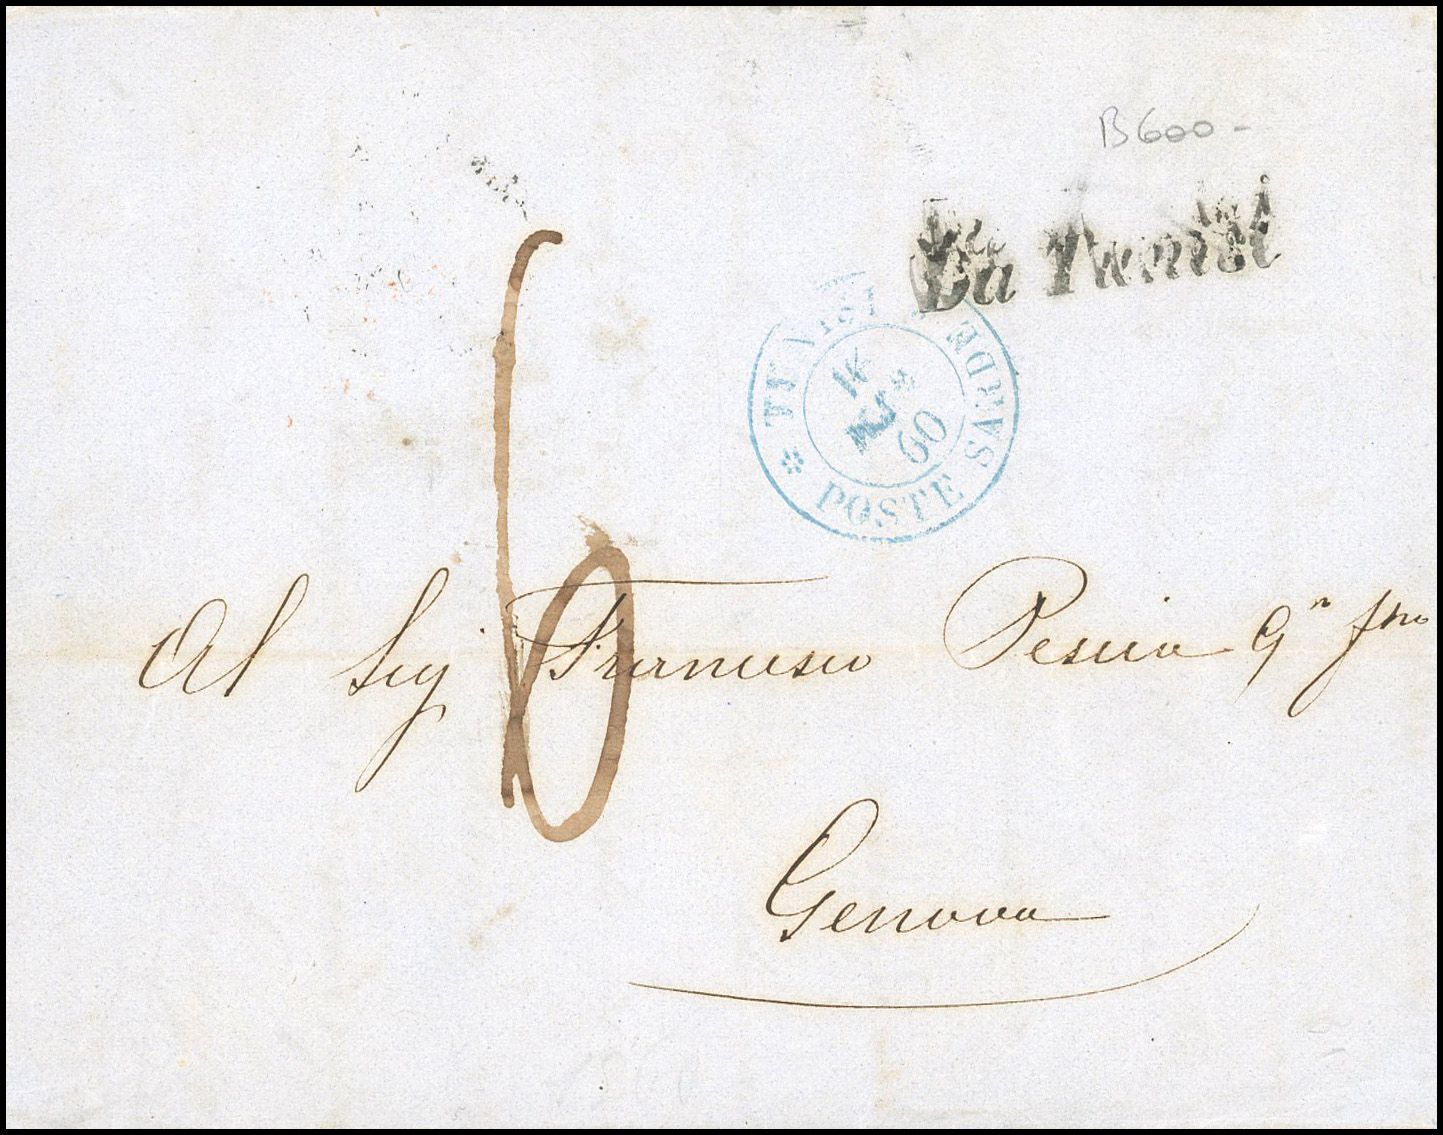 B600-
Da Tunisi
TUNISI
POSTE SARDE
60
6
Al Sig. Francesco Pescia q.m
Genova